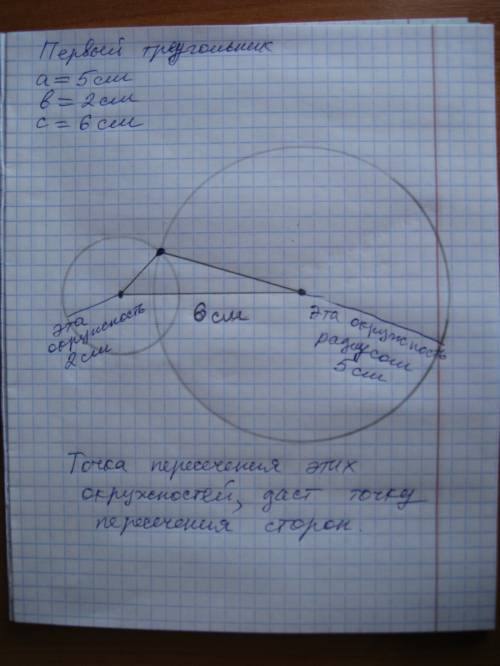 Первый треугольник
a = 5 см
в = 2 см
с = 6 см
6 см
эта
окружность
2 см
Эта окружность
радиусом
5 см
Точка пересечения этих
окружностей, даст точку
пересечения сторон.